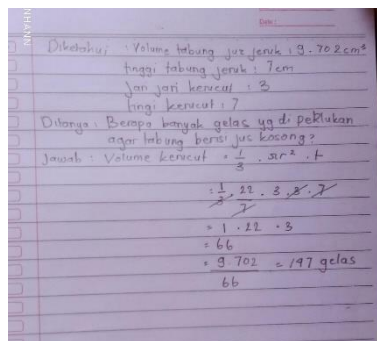 Date:
Diketahui : Volume tabung jus jeruk : 9.702 cm³
tinggi tabung jeruk : 7 cm
Jari jari kerucut : 3
tingi kerucut : 7
Ditanya : Berapa banyak gelas yg di peklukan
agar tabung berisi jus kosong?
Jawab : Volume kerucut = 1/3 . πr² . t
= 1/3 . 22/7 . 3 . 3 . 7
= 1 . 22 . 3
= 66
= 9.702/66 = 147 gelas